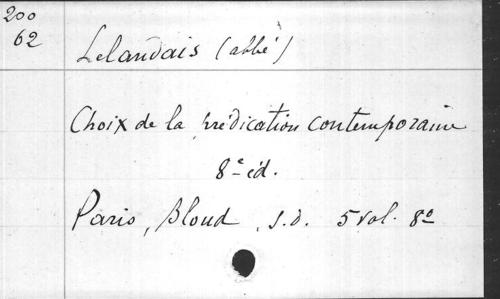 200
62
Lelandais (abbé)
Choix de la prédication contemporaine
8e éd.
Paris, Bloud, s.d. 5 vol. 8º